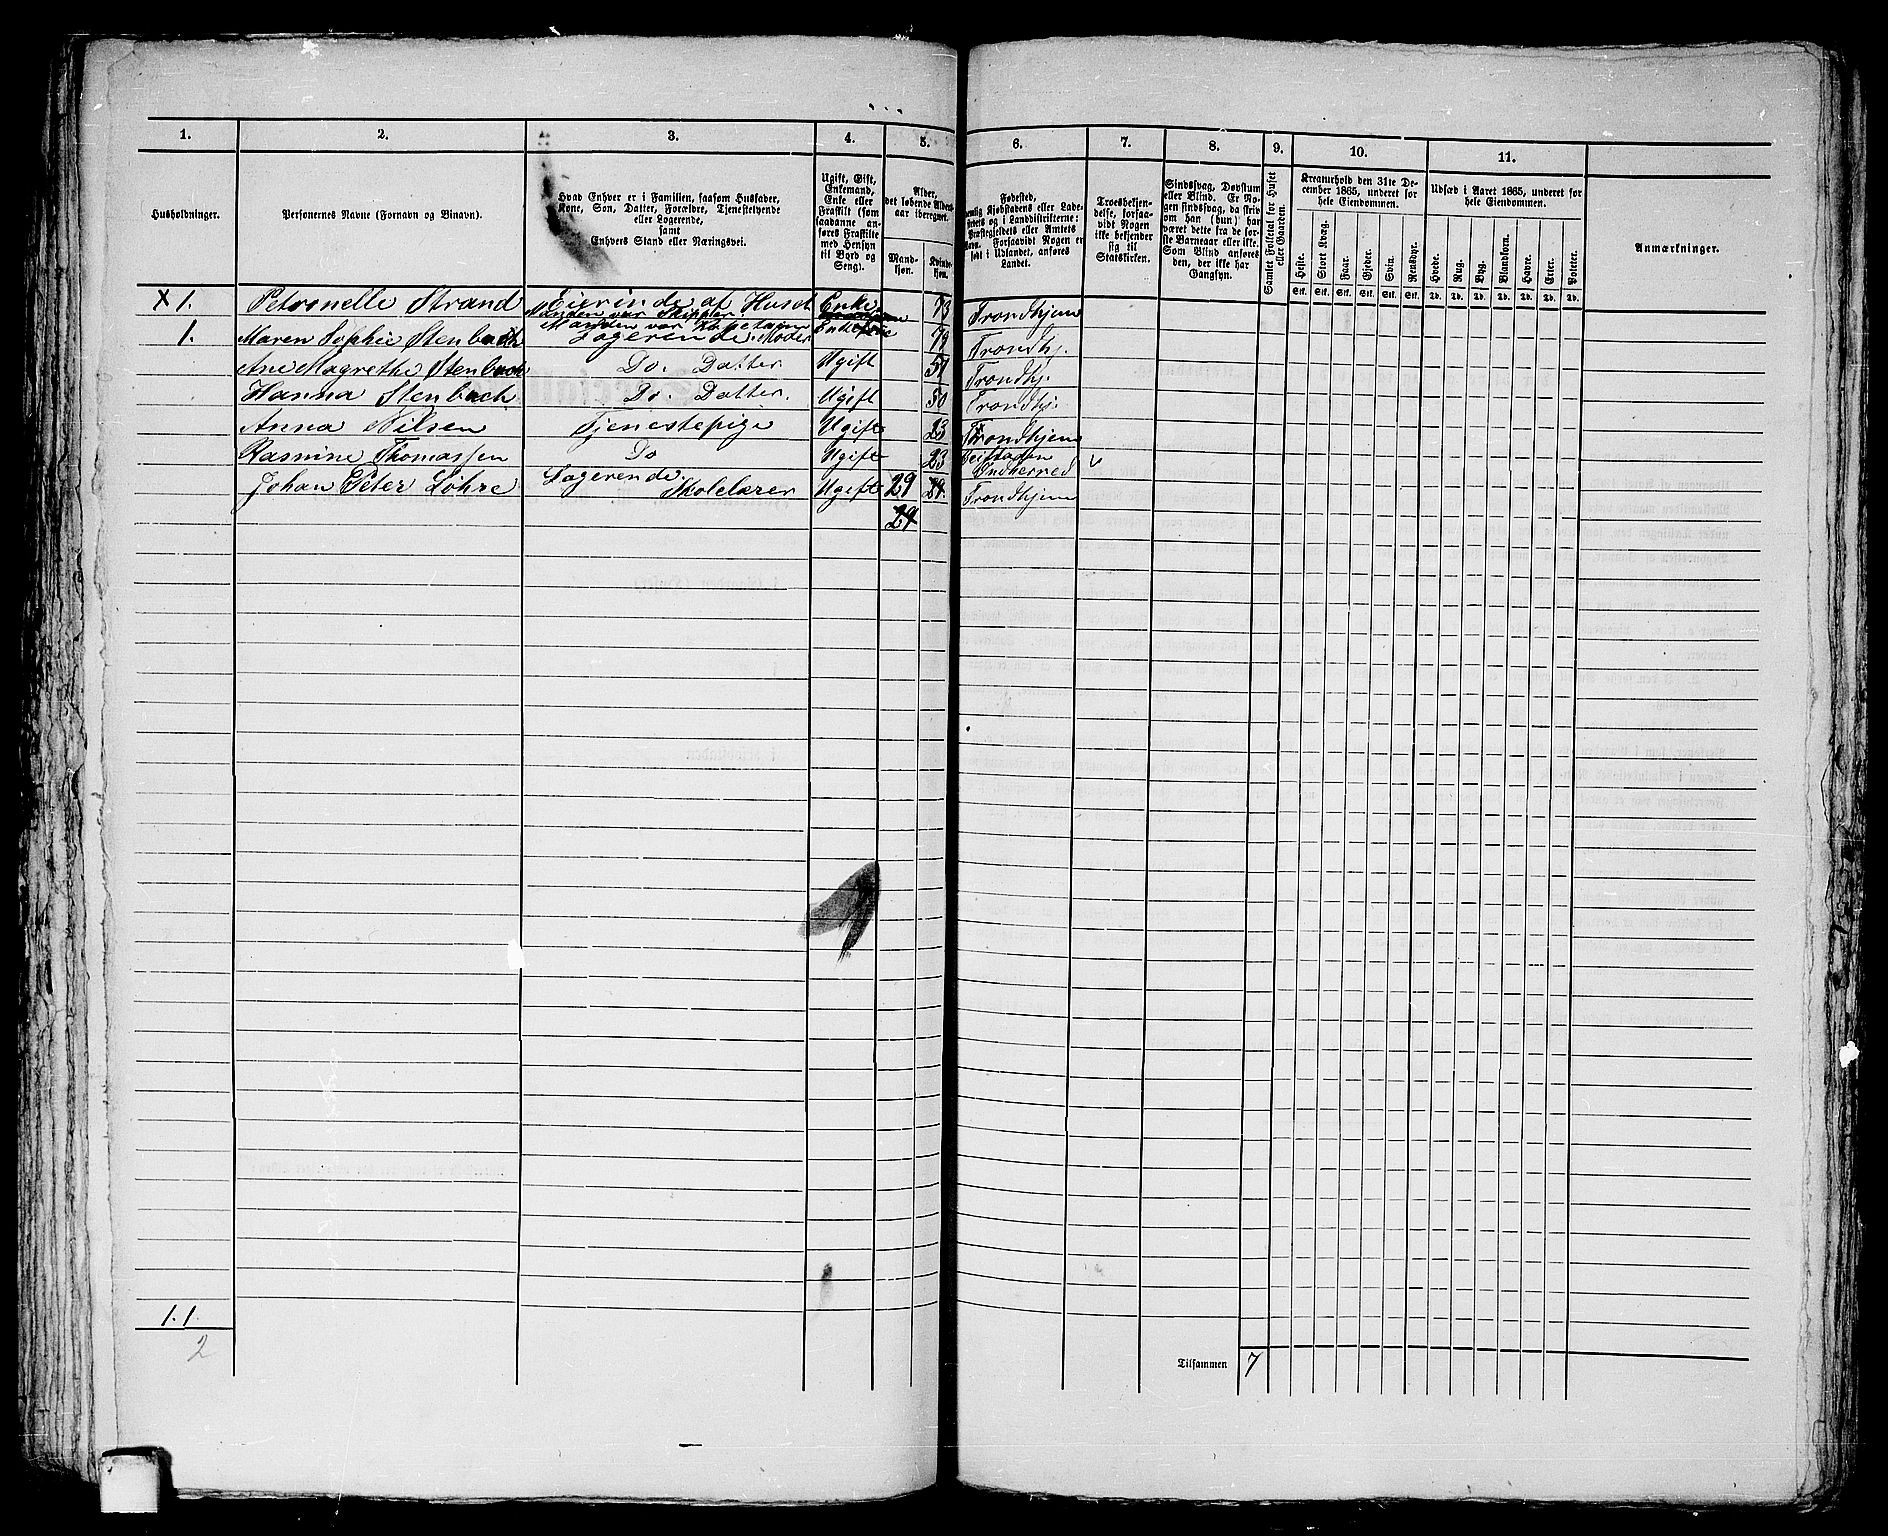 1. 2. 3. 4. 5. 6. 7. 8. 9. 10. 11.
Husholdninger.
Personernes Navne (Fornavn og Binavn).
Hvad Enhver er i Familien, saasom Husfader,
Kone, Søn, Datter, Forældre, Tjenestetyende
eller Logerende,
samt
Enhvers Stand eller Næringsvei.
Ugift, Gift,
Enkemand,
Enke eller
Fraskilt (som
saadanne an-
føres Fraskilte
med Hensyn
til Bord og
Seng).
Alder,
det løbende Alders-
aar iberegnet.
Mand-
kjøn.
Kvinde-
kjøn.
Fødested,
nemlig Kjøbstadens eller Lade-
stedets og i Landdistrikterne:
Præstegjeldets eller Amtets
Navn. Forsaavidt Nogen er
født i Udlandet, anføres
Landet.
Troesbekjen-
delse, forsaa-
vidt Nogen
ikke bekjender
sig til
Statskirken.
Sindssvag, Døvstum
eller Blind. Er No-
gen sindssvag, da skriv
om han (hun) har
været dette fra de før-
ste Barneaar eller ikke.
Som Blind anføres
den, der ikke har
Gangsyn.
Samlet Folketal for Huset
eller Gaarden.
Kreaturhold den 31te De-
cember 1865, underet for
hele Eiendommen.
Heste. Stort Kvæg. Faar. Gjeder. Svin. Rensdyr.
Stk. Stk. Stk. Stk. Stk. Stk.
Udsæd i Aaret 1865, underet for
hele Eiendommen.
Hvede. Rug. Byg. Blandkorn. Havre. Erter. Poteter.
Td. Td. Td. Td. Td. Td. Td.
Anmærkninger.
X 1. Petronelle Strand Eierinde af Huset Enke 73 Trondhjem
Manden var Skipper.
Manden var Kapetain
1. Maren Sophie Stenbach Logerende. Moder Enke 79 Trondhj.
Ane Magrethe Stenbach Do. Datter Ugift 51 Trondhj.
Hanna Stenbach Do. Datter. Ugift 50 Trondhj.
Anna Nilsen Tjenestepige Ugift 23 Trondhjem
Rasmine Thomassen Do Ugift 23
Johan Peter Lohre Logerende. Skolelærer Ugift 29 29. Trondhjem
29
1. 1.
2
Tilsammen 7